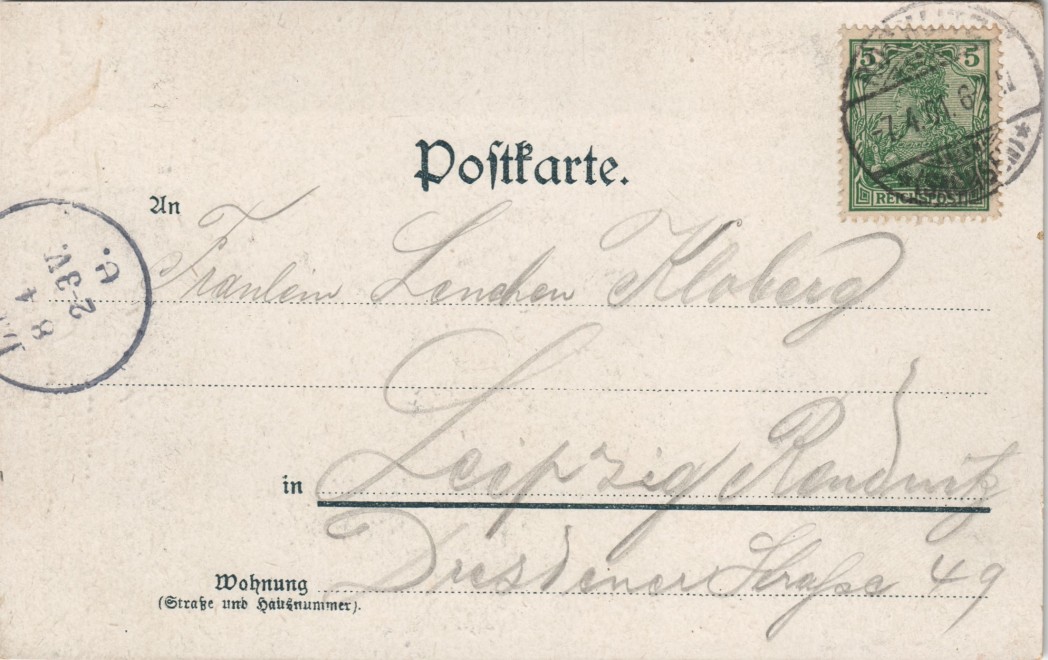 5 5
-7.4.01. 6-7 N
REICHSPOST
Postkarte.
An
Fräulein Lenchen Kloberg
8 4
2-3N.
in Leipzig Reudnitz
Wohnung Dresdener Straße 49
(Straße und Hausnummer).